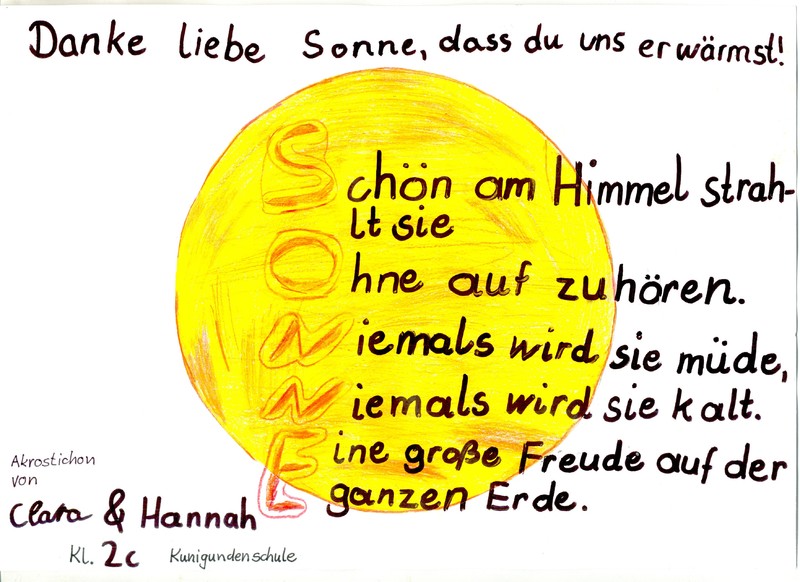 Danke liebe Sonne, dass du uns erwärmst!
Schön am Himmel strah-
lt sie
Ohne auf zuhören.
Niemals wird sie müde,
Niemals wird sie kalt.
Eine große Freude auf der
ganzen Erde.
Akrostichon
von
Clara & Hannah
Kl. 2c Kunigundenschule